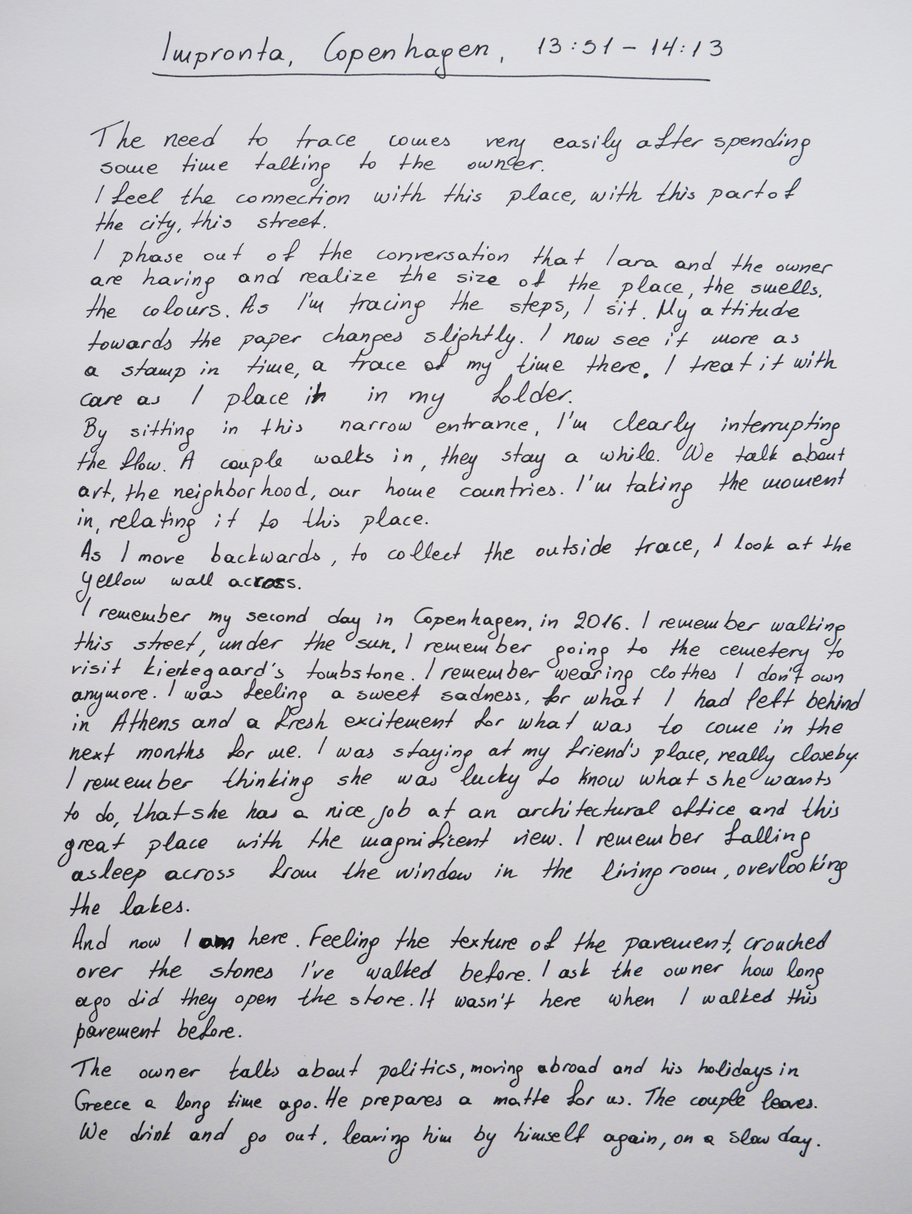 Impronta, Copenhagen, 13:51 - 14:13
The need to trace comes very easily after spending
some time talking to the owner.
I feel the connection with this place, with this part of
the city, this street.
I phase out of the conversation that Lara and the owner
are having and realize the size of the place, the smells,
the colours. As I'm tracing the steps, I sit. My attitude
towards the paper changes slightly. I now see it more as
a stamp in time, a trace of my time there. I treat it with
care as I place it in my folder.
By sitting in this narrow entrance, I'm clearly interrupting
the flow. A couple walks in, they stay a while. We talk about
art, the neighborhood, our home countries. I'm taking the moment
in, relating it to this place.
As I move backwards, to collect the outside trace, I look at the
yellow wall across.
I remember my second day in Copenhagen, in 2016. I remember walking
this street, under the sun. I remember going to the cemetery to
visit kierkegaard's tombstone. I remember wearing clothes I don't own
anymore. I was feeling a sweet sadness, for what I had left behind
in Athens and a fresh excitement for what was to come in the
next months for me. I was staying at my friend's place, really closeby.
I remember thinking she was lucky to know what she wants
to do, that she has a nice job at an architectural office and this
great place with the magnificent view. I remember falling
asleep across from the window in the living room, overlooking
the lakes.
And now I am here. Feeling the texture of the pavement, crouched
over the stones I've walked before. I ask the owner how long
ago did they open the store. It wasn't here when I walked this
pavement before.
The owner talks about politics, moving abroad and his holidays in
Greece a long time ago. He prepares a matte for us. The couple leaves.
We drink and go out, leaving him by himself again, on a slow day.